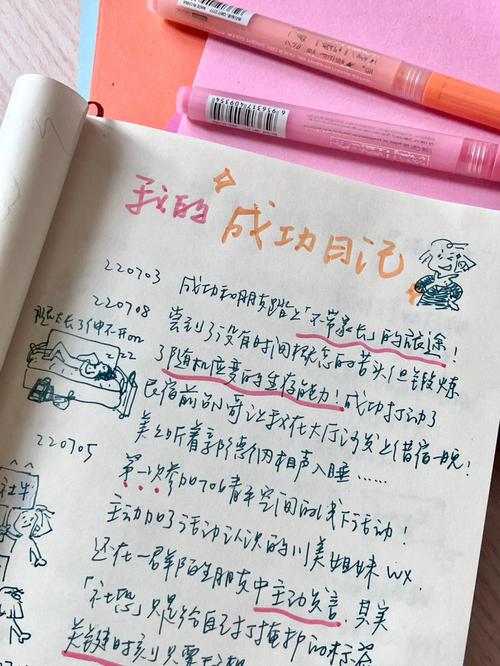 我的成功日记
220703 成功和朋友踏上"不带家长"的旅途!
220708 尝到了没有时间概念的苦头但锻炼
了随机应变的生存能力!成功打动了
民宿前台小哥让我在大厅沙发上借宿一晚!
美美听着郭德纲相声入睡……
腿太长了伸不开
220705 第一次参加706青年空间的线下活动!
主动加了活动认识的川美姐妹wx.
还在一群陌生朋友中主动发言.其实
「社恐」只是给自己打掩护的标签
关键时刻只要
社牛
6956317409354